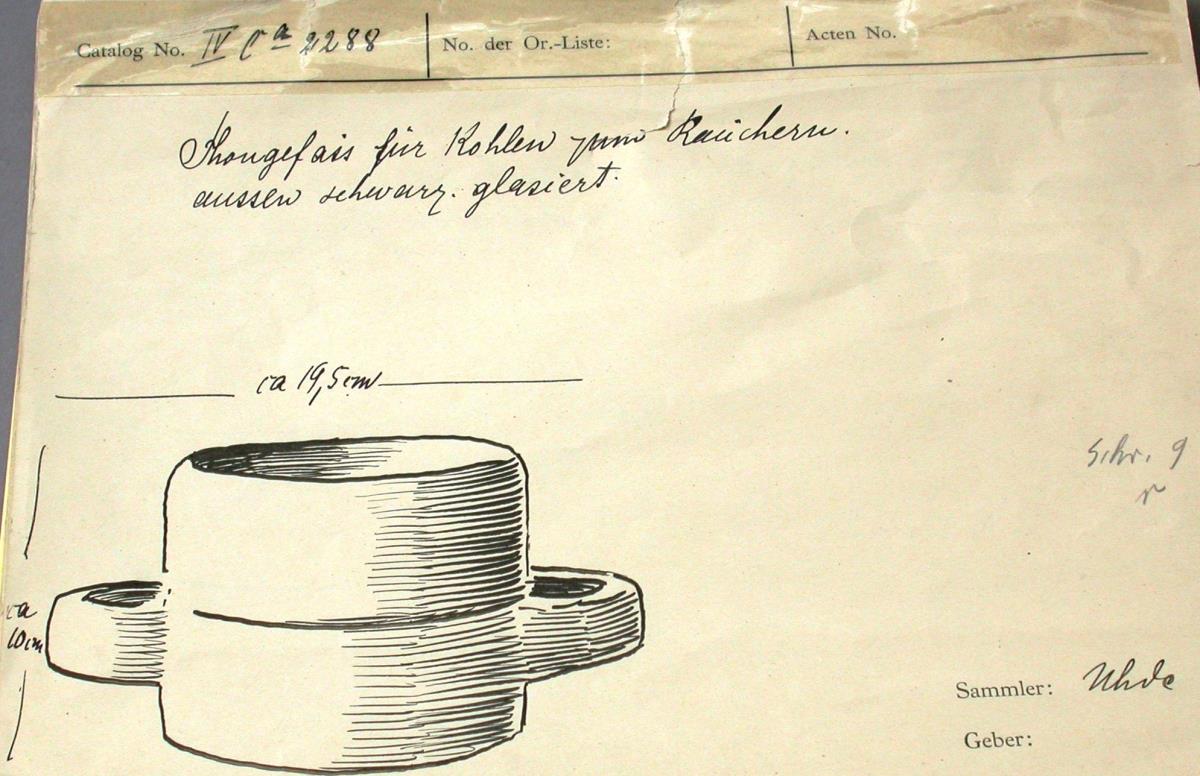 Catalog No. IV Ca 2288 No. der Or.-Liste: Acten No.
Thongefäss für Kohlen zum Räuchern.
aussen schwarz. glasiert.
ca 19,5 cm
Schr. 9
r
ca
10 cm
Sammler: Uhde
Geber: